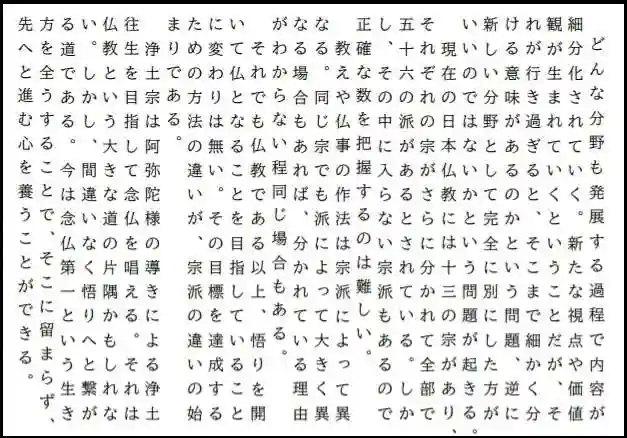 どんな分野も発展する過程で内容が
細分化されていく。新たな視点や価値
観が生まれていくということだが、そ
れが行き過ぎると、そこまで細かく分
ける意味があるのかという問題、逆に
新しい分野として完全に別にした方が
いいのではないかという問題が起きる。
現在の日本仏教には十三の宗があり、
それぞれの宗がさらに分かれて全部で
五十六の派があるとされている。しか
し、その中に入らない宗派もあるので
正確な数を把握するのは難しい。
教えや仏事の作法は宗派によって異
なる。同じ宗でも派によって大きく異
なる場合もあれば、分かれている理由
がわからない程同じ場合もある。
それでも仏教である以上、悟りを開
いて仏となることを目指していること
に変わりは無い。その目標を達成する
ための方法の違いが、宗派の違いの始
まりである。
浄土宗は阿弥陀様の導きによる浄土
往生を目指して念仏を唱える。それは
仏教という大きな道の片隅かもしれな
い。しかし、間違いなく悟りへと繋が
る道である。今は念仏第一という生き
方を全うすることで、そこに留まらず、
先へと進む心を養うことができる。